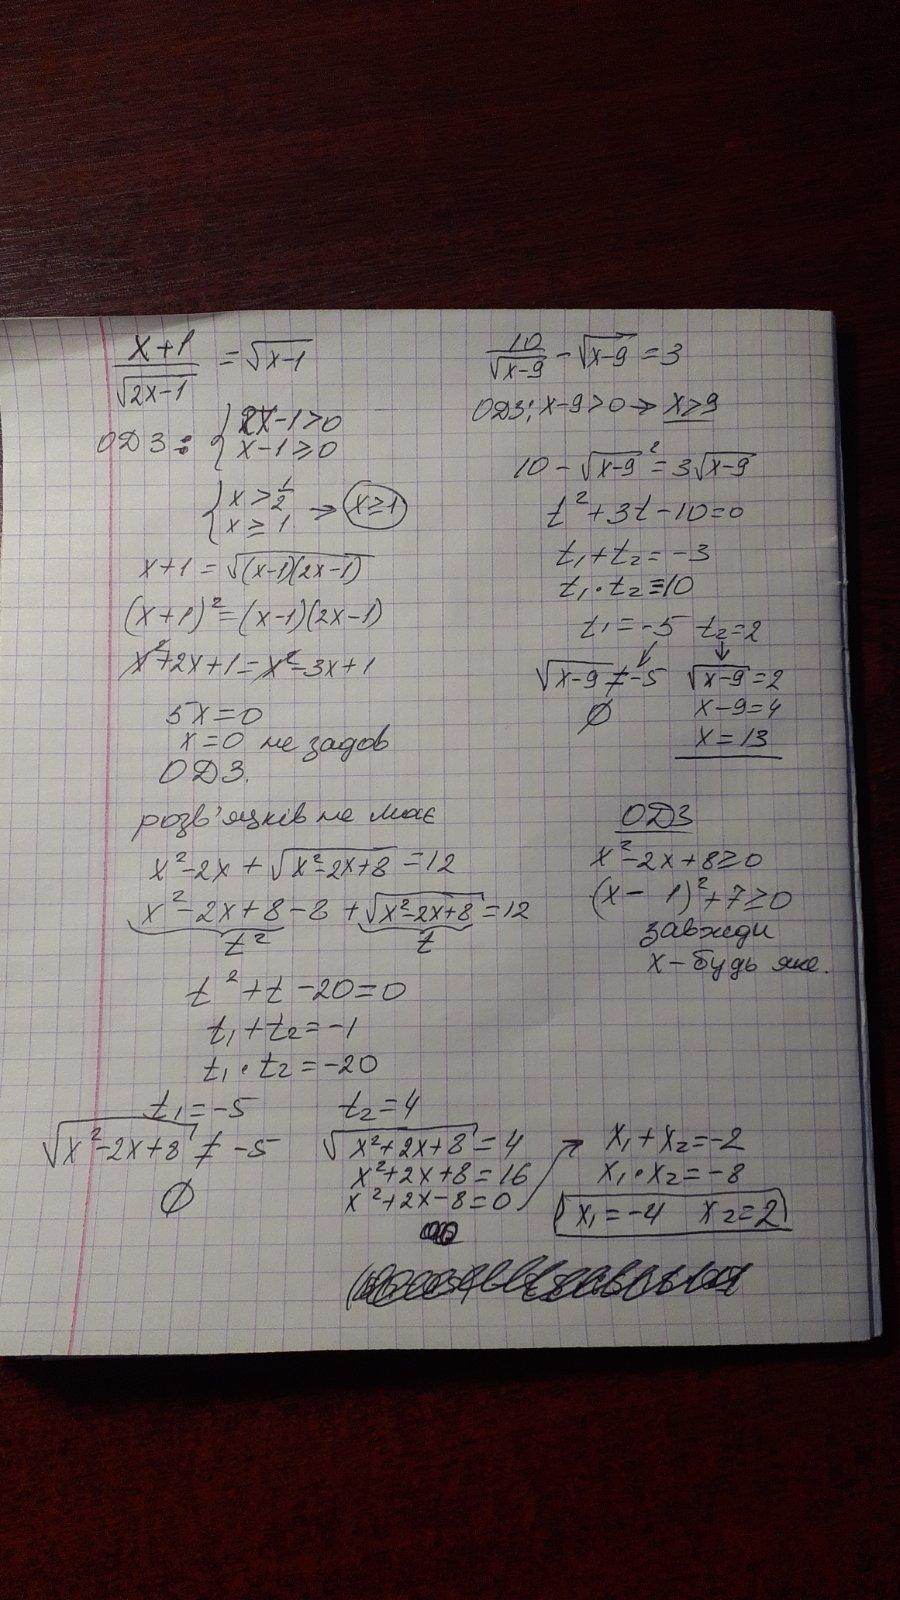 x+1/√(2x-1) = √(x-1)
ОДЗ: { 2x-1>0
x-1≥0
{ x>1/2
x≥1 → x≥1
x+1 = √((x-1)(2x-1))
(x+1)² = (x-1)(2x-1)
x²+2x+1 = x²-3x+1
5x=0
x=0 не задов
ОДЗ.
розв'язків не має
10/√(x-9) - √(x-9) = 3
ОДЗ: x-9>0 → x>9
10 - √(x-9)² = 3√(x-9)
t²+3t-10=0
t₁+t₂=-3
t₁·t₂=-10
t₁=-5 t₂=2
√(x-9) ≠ -5 √(x-9) = 2
∅ x-9=4
x=13
x²-2x+√(x²-2x+8) = 12
x²-2x+8-8+√(x²-2x+8) = 12
t² t
t²+t-20=0
t₁+t₂=-1
t₁·t₂=-20
t₁=-5 t₂=4
√(x²-2x+8) ≠ -5 √(x²+2x+8) = 4
∅ x²+2x+8=16
x²+2x-8=0
x₁+x₂=-2
x₁·x₂=-8
x₁=-4 x₂=2
ОДЗ
x²-2x+8≥0
(x-1)²+7≥0
завжди
x-будь яке.